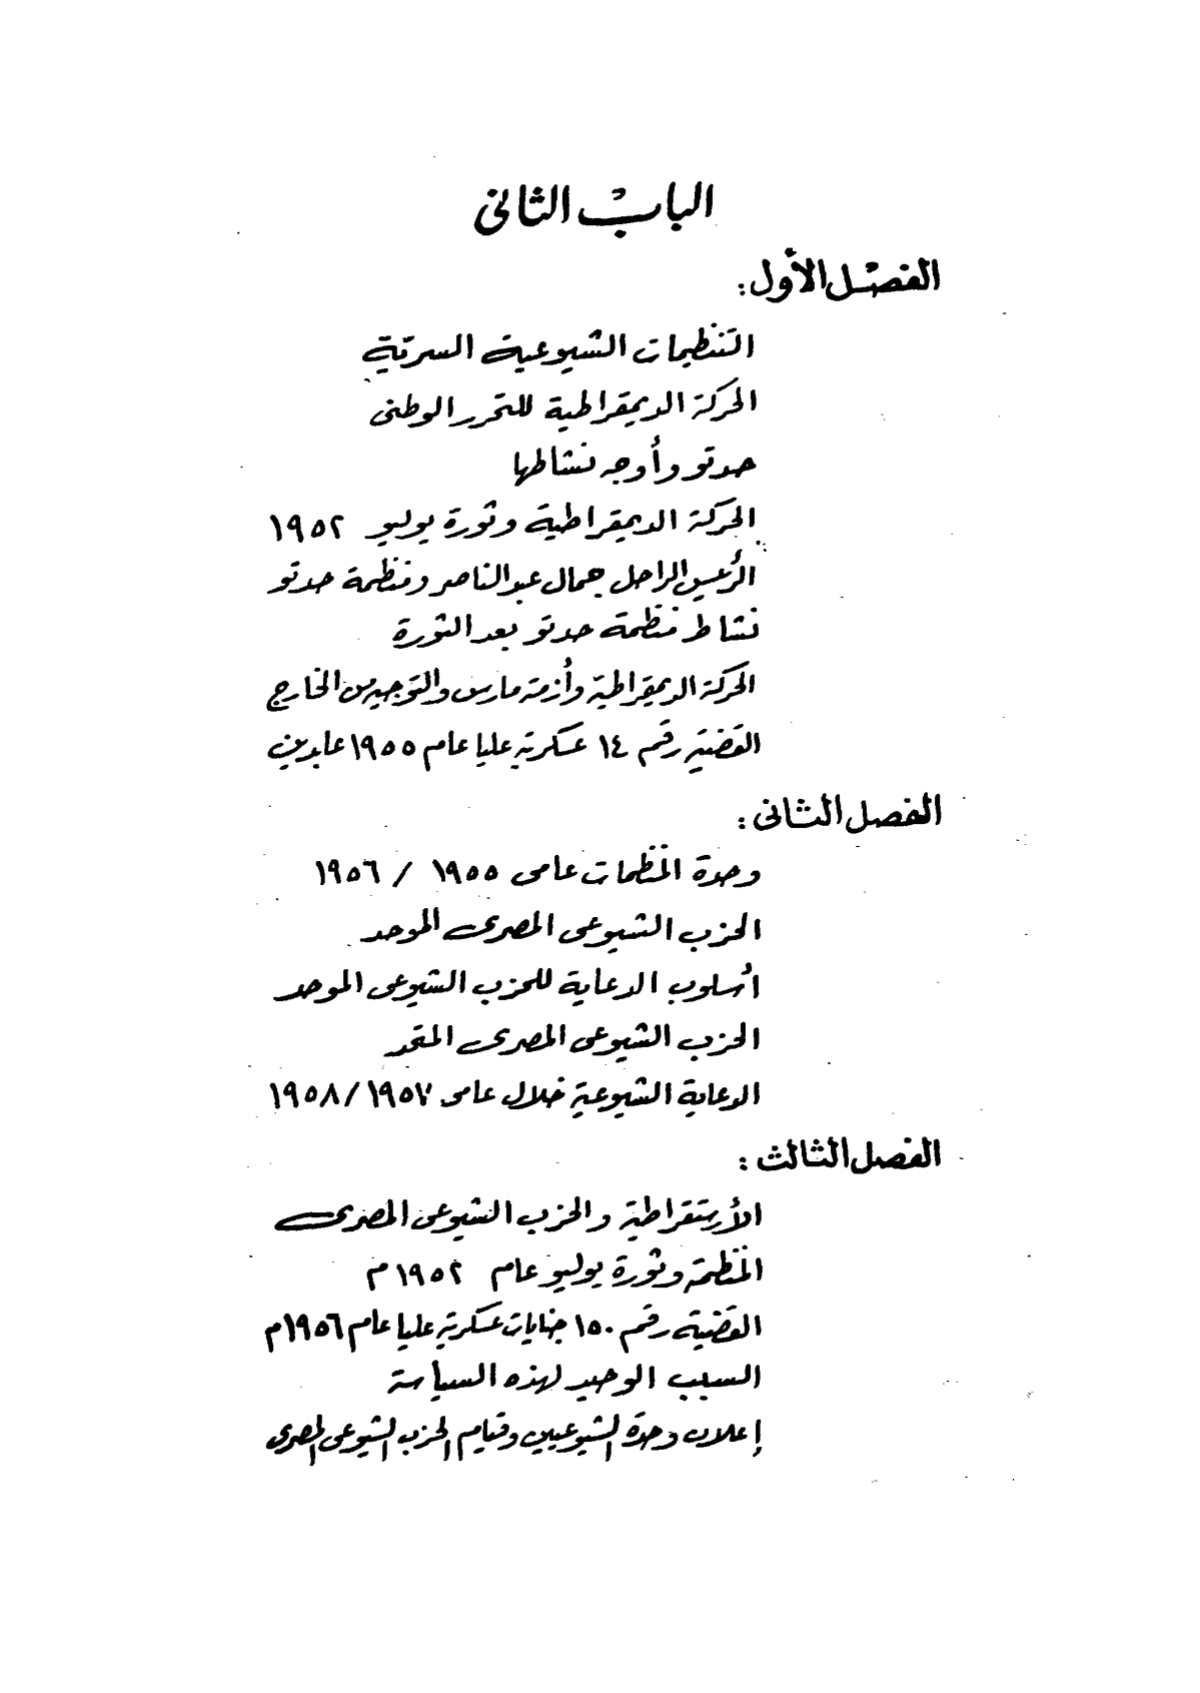 الباب الثانى
الفصل الأول :
التنظيمات الشيوعية السرية
الحركة الديمقراطية للتحرر الوطنى
حدتو وأوجه نشاطها
الحركة الديمقراطية وثورة يوليو ١٩٥٢
الرئيس الراحل جمال عبد الناصر ومنظمة حدتو
نشاط منظمة حدتو بعد الثورة
الحركة الديمقراطية وأزمة مارس والتوجيه من الخارج
القضية رقم ١٤ عسكرية عليا عام ١٩٥٥ عابدين
الفصل الثانى :
وحدة المنظمات عامى ١٩٥٥ / ١٩٥٦
الحزب الشيوعى المصرى الموحد
أسلوب الدعاية للحزب الشيوعى الموحد
الحزب الشيوعى المصرى المتحد
الدعاية الشيوعية خلال عامى ١٩٥٧/١٩٥٨
الفصل الثالث :
الأرستقراطية والحزب الشيوعى المصرى
المنظمة وثورة يوليو عام ١٩٥٢ م
القضية رقم ١٥٠ جنايات عسكرية عليا عام ١٩٥٦م
السبب الوحيد لهذه السياسة
إعلان وحدة الشيوعيين وقيام الحزب الشيوعى المصرى